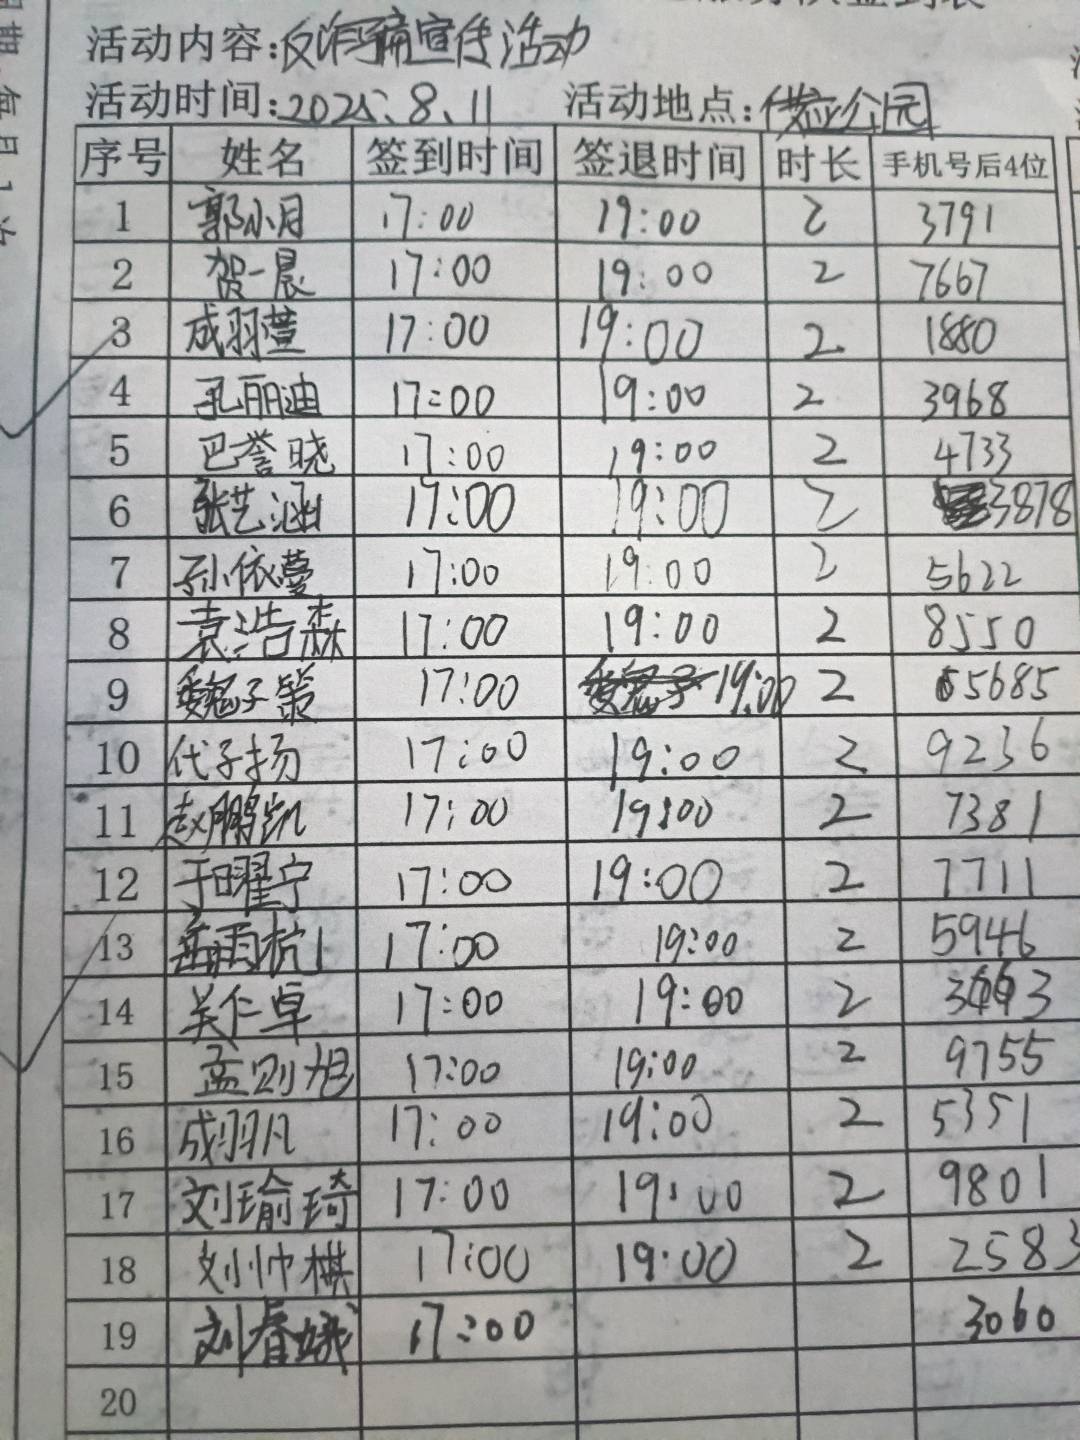 活动内容:反诈骗宣传活动
活动时间:2025.8.11 活动地点:公园
序号 姓名 签到时间 签退时间 时长 手机号后4位
1 郭小月 17:00 19:00 2 3791
2 贺一晨 17:00 19:00 2 7667
3 成羽萱 17:00 19:00 2 1880
4 孔丽迪 17:00 19:00 2 3968
5 巴誉晓 17:00 19:00 2 4733
6 张艺涵 17:00 19:00 2 3878
7 孙依蔓 17:00 19:00 2 5622
8 袁浩森 17:00 19:00 2 8550
9 魏子策 17:00 19:00 2 5685
10 代子扬 17:00 19:00 2 9236
11 赵鹏凯 17:00 19:00 2 7381
12 于曜宁 17:00 19:00 2 7711
13 雨杭 17:00 19:00 2 5946
14 关仁卓 17:00 19:00 2
15 孟则旭 17:00 19:00 2 9755
16 成羽凡 17:00 19:00 2 5351
17 刘瑜琦 17:00 19:00 2 9801
18 刘帅棋 17:00 19:00 2 2583
19 刘春娥 17:00 3060
20